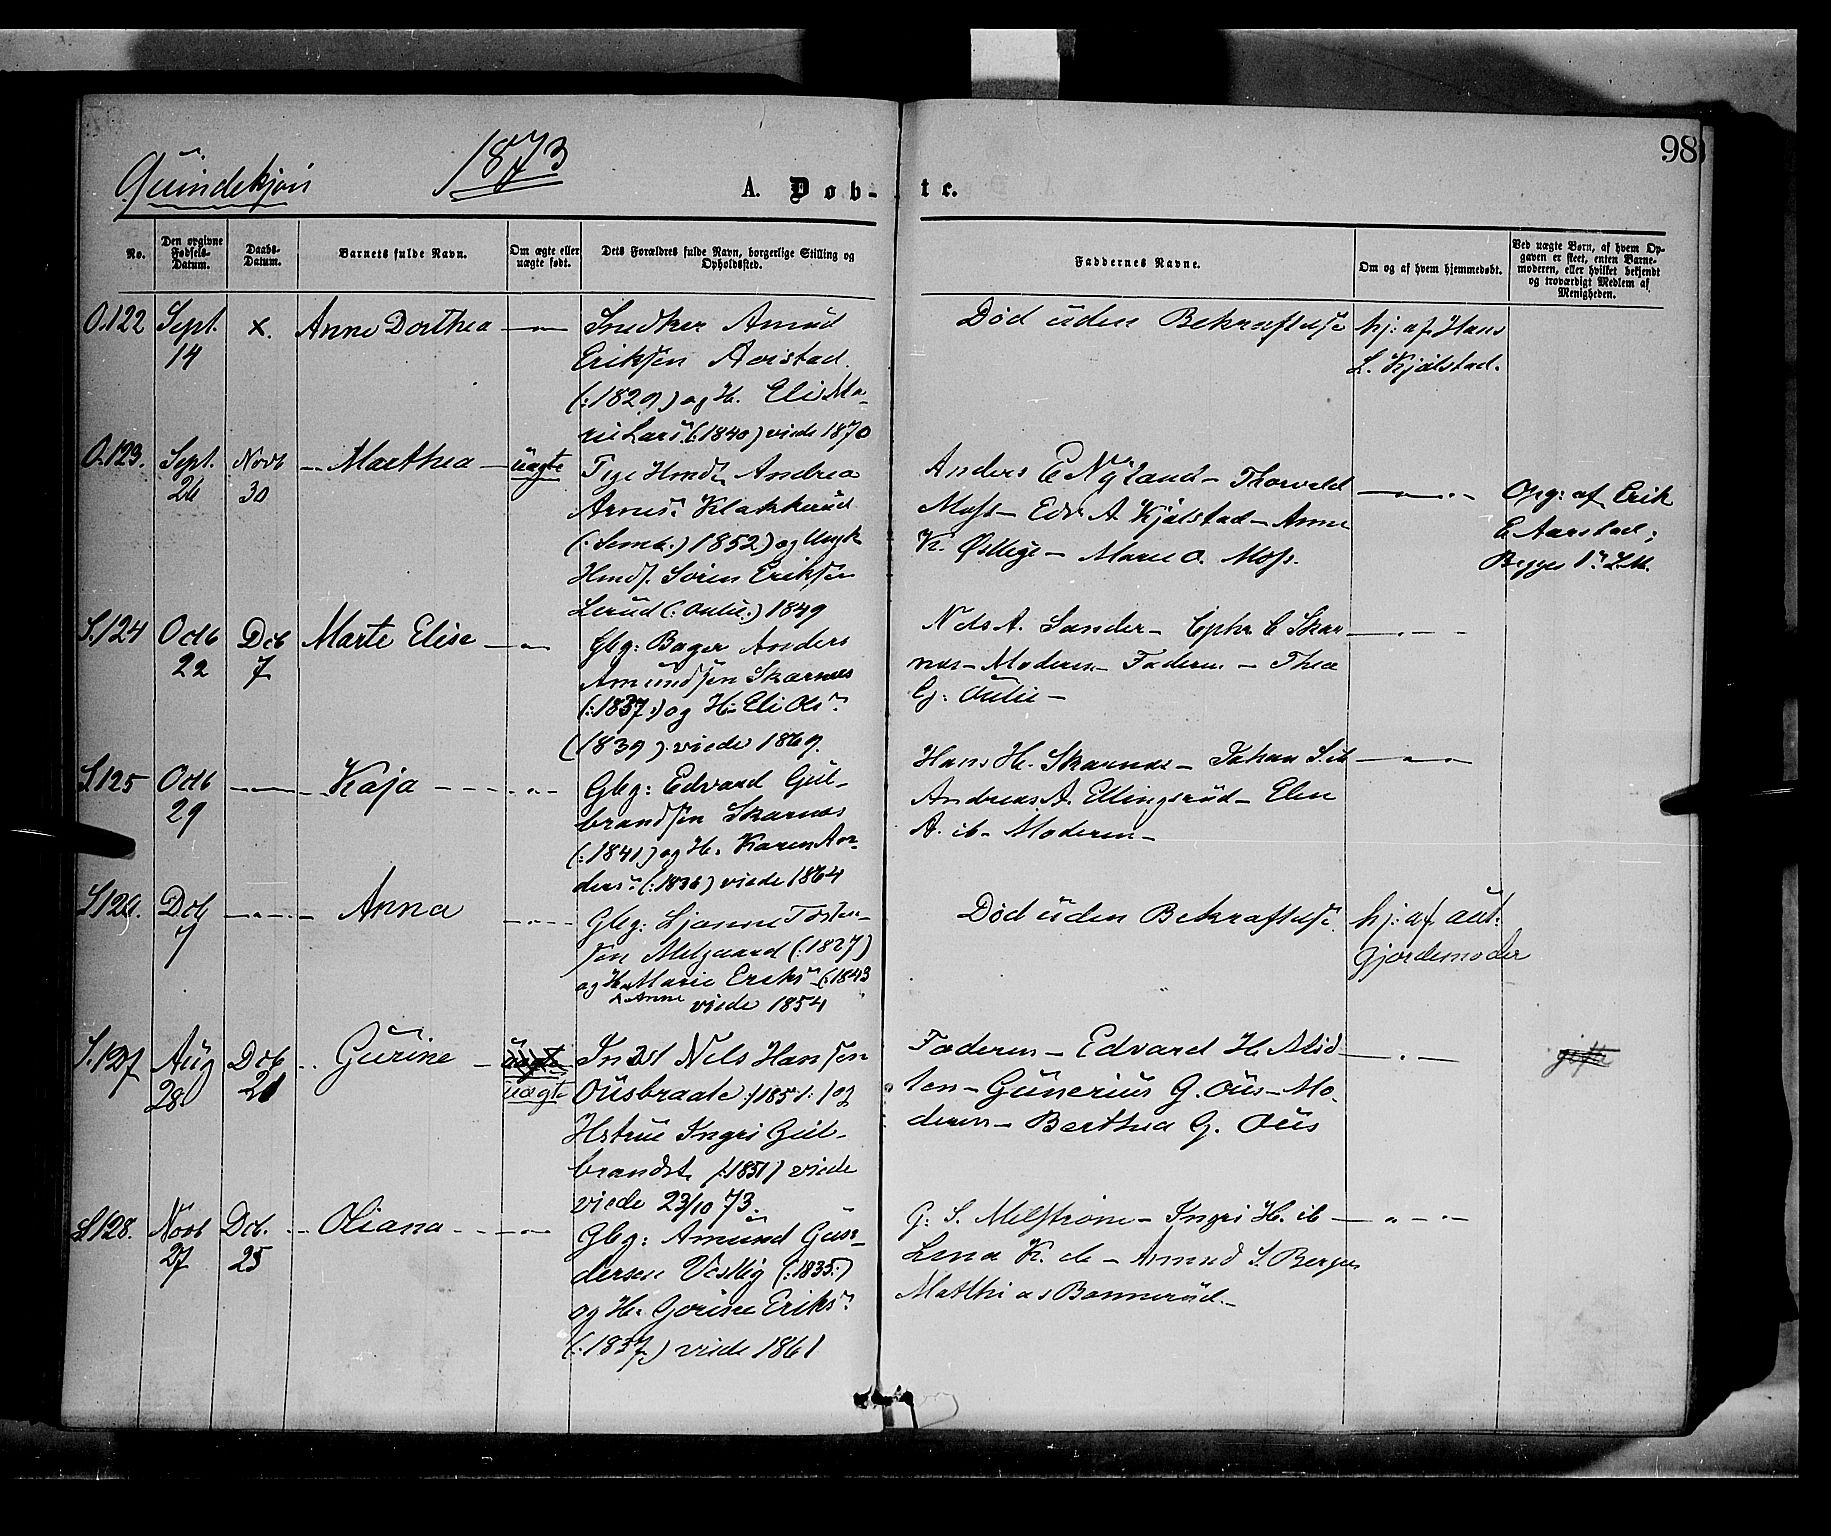 98
Quindekjøn
1873
A. Døb-te.
No.
Den opgivne Fødsels-Datum.
Daabs-Datum.
Barnets fulde Navn.
Om ægte eller uægte født.
Dets Forældres fulde Navn, borgerlige Stilling og Opholdssted.
Faddernes Navne.
Om og af hvem hjemmedøbt.
Ved uægte Børn, af hvem Opgaven er skeet, enten Barnemoderen, eller hvilket bekjendt og troværdigt Medlem af Menigheden.
O.122 Sept. 14 x. Anne Dorthea —"—
Snedker Amund
Eriksen Aarstad
(:1829) og H. Eli Ma-
rie Lars (:1840) viede 1870
Død uden Bekræftelse
hj: af Hans
L. Kjølstad.
O.123. Sept. 26 Novb 30 Marthea uægte
Pige Andrea
Arnesr. Klakkerud
1852) og Ungk
Søren Eriksen
Lerud 1849
Anders E Nyland – Thorvald
Moss – Edv A Kjølstad – Anne
K. – Marie O. Moss.
—"—"—
Opg: af Erik
E Aarstad;
Begges 1ste L.M.
S.124 Octb 22 Dcb 7 Marte Elise —"—
Gbg: Bager Anders
Amundsen Skarnæs
(:1837:) og H. Eli Olsr.
(1839) viede 1869.
Nels A. Sander – E Skar-
næs – Moderen – Faderen – Thea
—"—
S125 Octb 29 —"— Kaja —"—
Gbg: Edvard Gul-
brandsen Skarnæs
(:1841) og H. Karen An-
dersr. (:1836) viede 1864
Hans H. Skarnæs – Johan S. ib
Andreas A. Ellingsrud – Elen
A. ib – Moderen –
—"—
Dcb 7 —"— Anna —"—
Gbg:
sen Melgaard (:1827)
og H. Marie Eriksr. (:1843
Anne viede 1854
Død uden Bekræftelse
hj: af aut:
Gjordemoder
S.127 Aug 28 Dcb 21 Gurine uægte
uægte
Indst Nels Hansen
Ousbraate :/1851:/ og
Hstrue Ingri Gul-
brandst. (:1851) viede
viede 23/10 73.
Faderen – Edvard H. Mid-
ten – Gunerius G. Ous – Mo-
deren – Berthea G. Ous
—"—
gift
S128. Novb 27 Dcb. 25 Oliana —"—
Gbg: Amund Gun-
dersen Vestlig (:1835:)
og H. Gorine Eriksr.
(:1837) viede 1861
G: S. Milstrøm – Ingri H. ib –
Lena K. ib – Amund S. Berger
Matthias Bonnerud. –
—"—"—